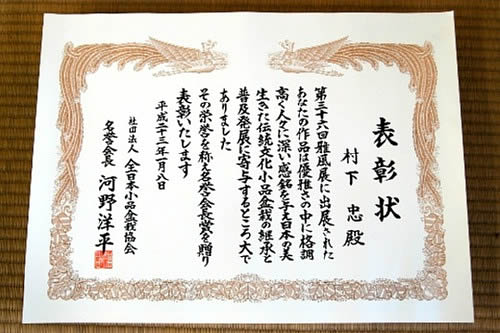 表彰状
村下 忠 殿
第三十六回雅風展に出展された
あなたの作品は優雅さの中に格調
高く人々に深い感銘を与え日本の美
生きた伝統文化小品盆栽の継承と
普及発展に寄与するところ大で
ありました
その栄誉を称え名誉会長賞を贈り
表彰いたします
平成二十三年一月八日
社団法人 全日本小品盆栽協会
名誉会長 河野洋平